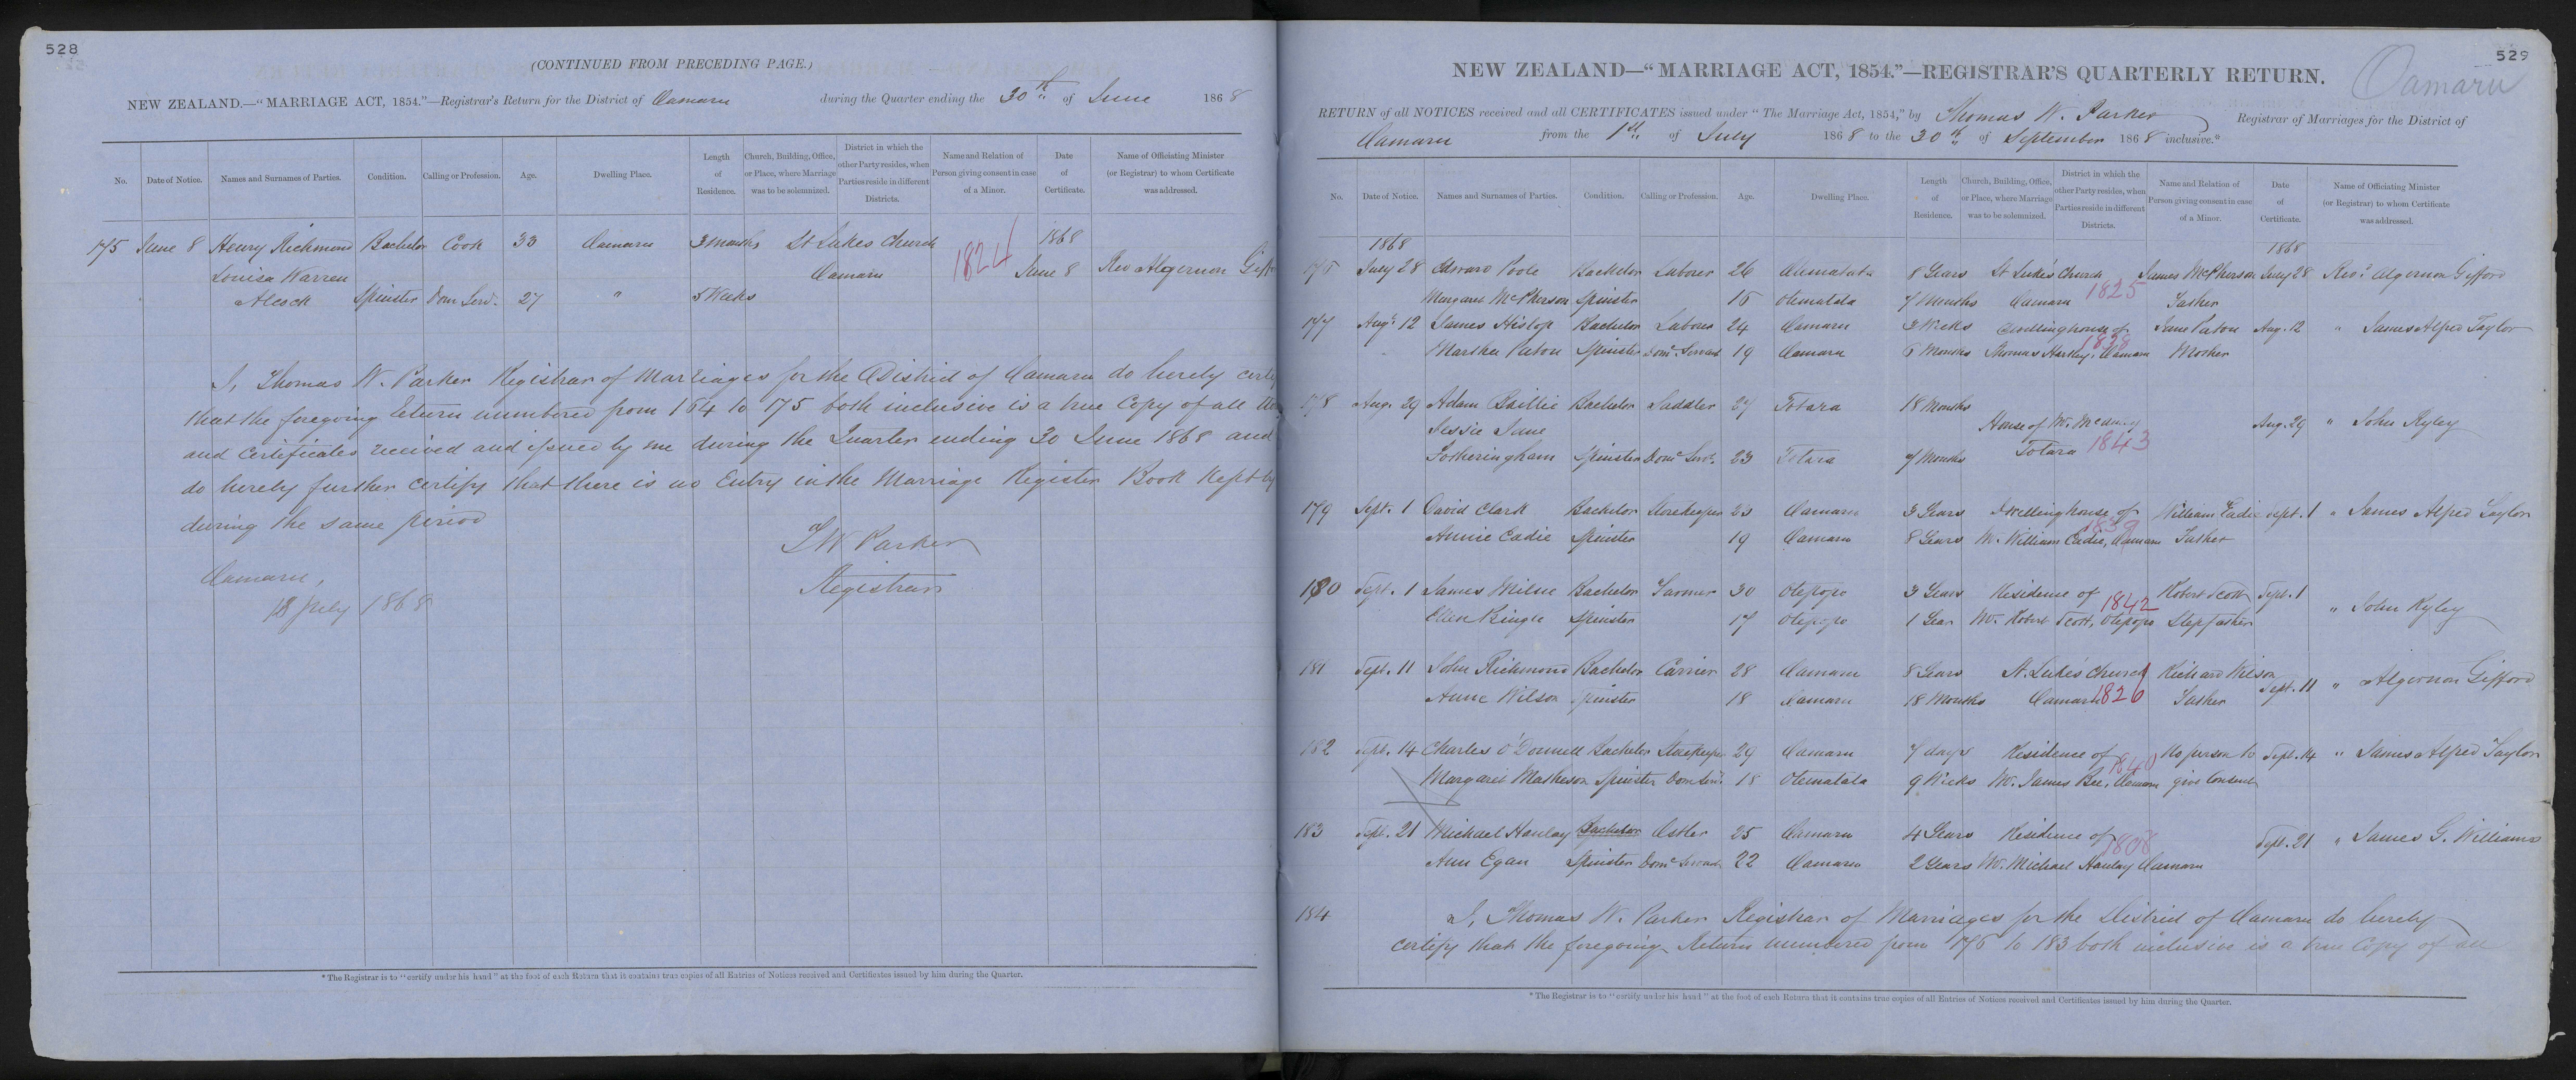 528
(CONTINUED FROM PRECEDING PAGE.)
NEW ZEALAND.—"MARRIAGE ACT, 1854."—Registrar's Return for the District of Oamaru during the Quarter ending the 30th of June 1868
No. Date of Notice. Names and Surnames of Parties. Condition. Calling or Profession. Age. Dwelling Place. Length of Residence. Church, Building, Office, or Place, where Marriage was to be solemnized. District in which the other Party resides, when Parties reside in different Districts. Name and Relation of Person giving consent in case of a Minor. Date of Certificate. Name of Officiating Minister (or Registrar) to whom Certificate was addressed.
1868
175 June 8 Henry Richmond Bachelor Cook 33 Oamaru 3 months St Lukes Church
Louisa Warren Oamaru 1824 June 8 Rev Algernon Giff
Alcock Spinster Dom Serv. 27 " 5 Weeks
I, Thomas W. Parker Registrar of Marriages for the District of Oamaru do hereby certify
that the foregoing Return numbered from 164 to 175 both inclusive is a true Copy of all the
and Certificates received and issued by me during the Quarter ending 30 June 1868 and
do hereby further certify that there is no Entry in the Marriage Register Book Kept by
during the same period
T W Parker
Registrar
Oamaru,
July 1868
529
Oamaru
NEW ZEALAND—"MARRIAGE ACT, 1854."—REGISTRAR'S QUARTERLY RETURN.
RETURN of all NOTICES received and all CERTIFICATES issued under "The Marriage Act, 1854," by Thomas W. Parker Registrar of Marriages for the District of
Oamaru from the 1st of July 1868 to the 30th of September 1868 inclusive.*
No. Date of Notice. Names and Surnames of Parties. Condition. Calling or Profession. Age. Dwelling Place. Length of Residence. Church, Building, Office, or Place, where Marriage was to be solemnized. District in which the other Party resides, when Parties reside in different Districts. Name and Relation of Person giving consent in case of a Minor. Date of Certificate. Name of Officiating Minister (or Registrar) to whom Certificate was addressed.
1868 1868
176 July 28 Edward Poole Bachelor Laborer 26 Otematata 8 Years St Luke's Church James McPherson July 28 Revd. Algernon Gifford
Margaret McPherson Spinster 16 Otematata 7 Months Oamaru 1825 Father
177 Aug. 12 James Hislop Bachelor Laborer 24 Oamaru 3 Weeks Dwelling house of Jane Paton Aug. 12 " James Alfred Taylor
Martha Paton Spinster Domc. Servant 19 Oamaru 6 Months Thomas Hartley, Oamaru 1838 Mother
178 Aug. 29 Adam Baillie Bachelor Saddler 27 Totara 18 Months
Jessie Jane House of Mr. Aug. 29 " John Ryley
Fotheringham Spinster Domc. Servt. 23 Totara 7 Months Totara 1843
179 Sept. 1 David Clark Bachelor Storekeeper 23 Oamaru 3 Years Dwelling house of William Eadie Sept. 1 " James Alfred Taylor
Annie Eadie Spinster 19 Oamaru 8 Years Mr. William Eadie, Oamaru 1839 Father
180 Sept. 1 James Milne Bachelor Farmer 30 Otepopo 3 Years Residence of Robert Scott Sept. 1
Ellen Pringle Spinster 17 Otepopo 1 Year Mr. Robert Scott, Otepopo 1842 Stepfather " John Ryley
181 Sept. 11 John Richmond Bachelor Carrier 28 Oamaru 8 Years St. Lukes' Church Richard Wilson Sept. 11 " Algernon Gifford
Anne Wilson Spinster 18 Oamaru 18 Months Oamaru 1826 Father
182 Sept. 14 Charles O'Donnell Bachelor Storekeeper 29 Oamaru 7 days Residence of No person to Sept. 14 " James Alfred Taylor
Margaret Matheson Spinster Dom Servt. 18 Otematata 9 Weeks Mr. James Bee, Oamaru 1840 give Consent
183 Sept. 21 Michael Hanley Bachelor Ostler 25 Oamaru 4 Years Residence of Sept. 21 " James G. Williams
Ann Egan Spinster Domc. Servant 22 Oamaru 2 Years Mr. Michael Hanley Oamaru 1808
184 I, Thomas W. Parker Registrar of Marriages for the District of Oamaru do hereby
certify that the foregoing Return numbered from 176 to 183 both inclusive is a true Copy of all
* The Registrar is to "certify under his hand" at the foot of each Return that it contains true copies of all Entries of Notices received and Certificates issued by him during the Quarter.
* The Registrar is to "certify under his hand" at the foot of each Return that it contains true copies of all Entries of Notices received and Certificates issued by him during the Quarter.